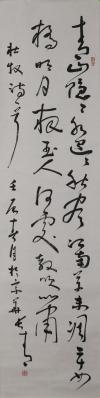 青山隐隐水迢迢秋尽江南草未凋二十四
桥明月夜玉人何处教吹箫
杜牧诗一首 壬辰春月于京华